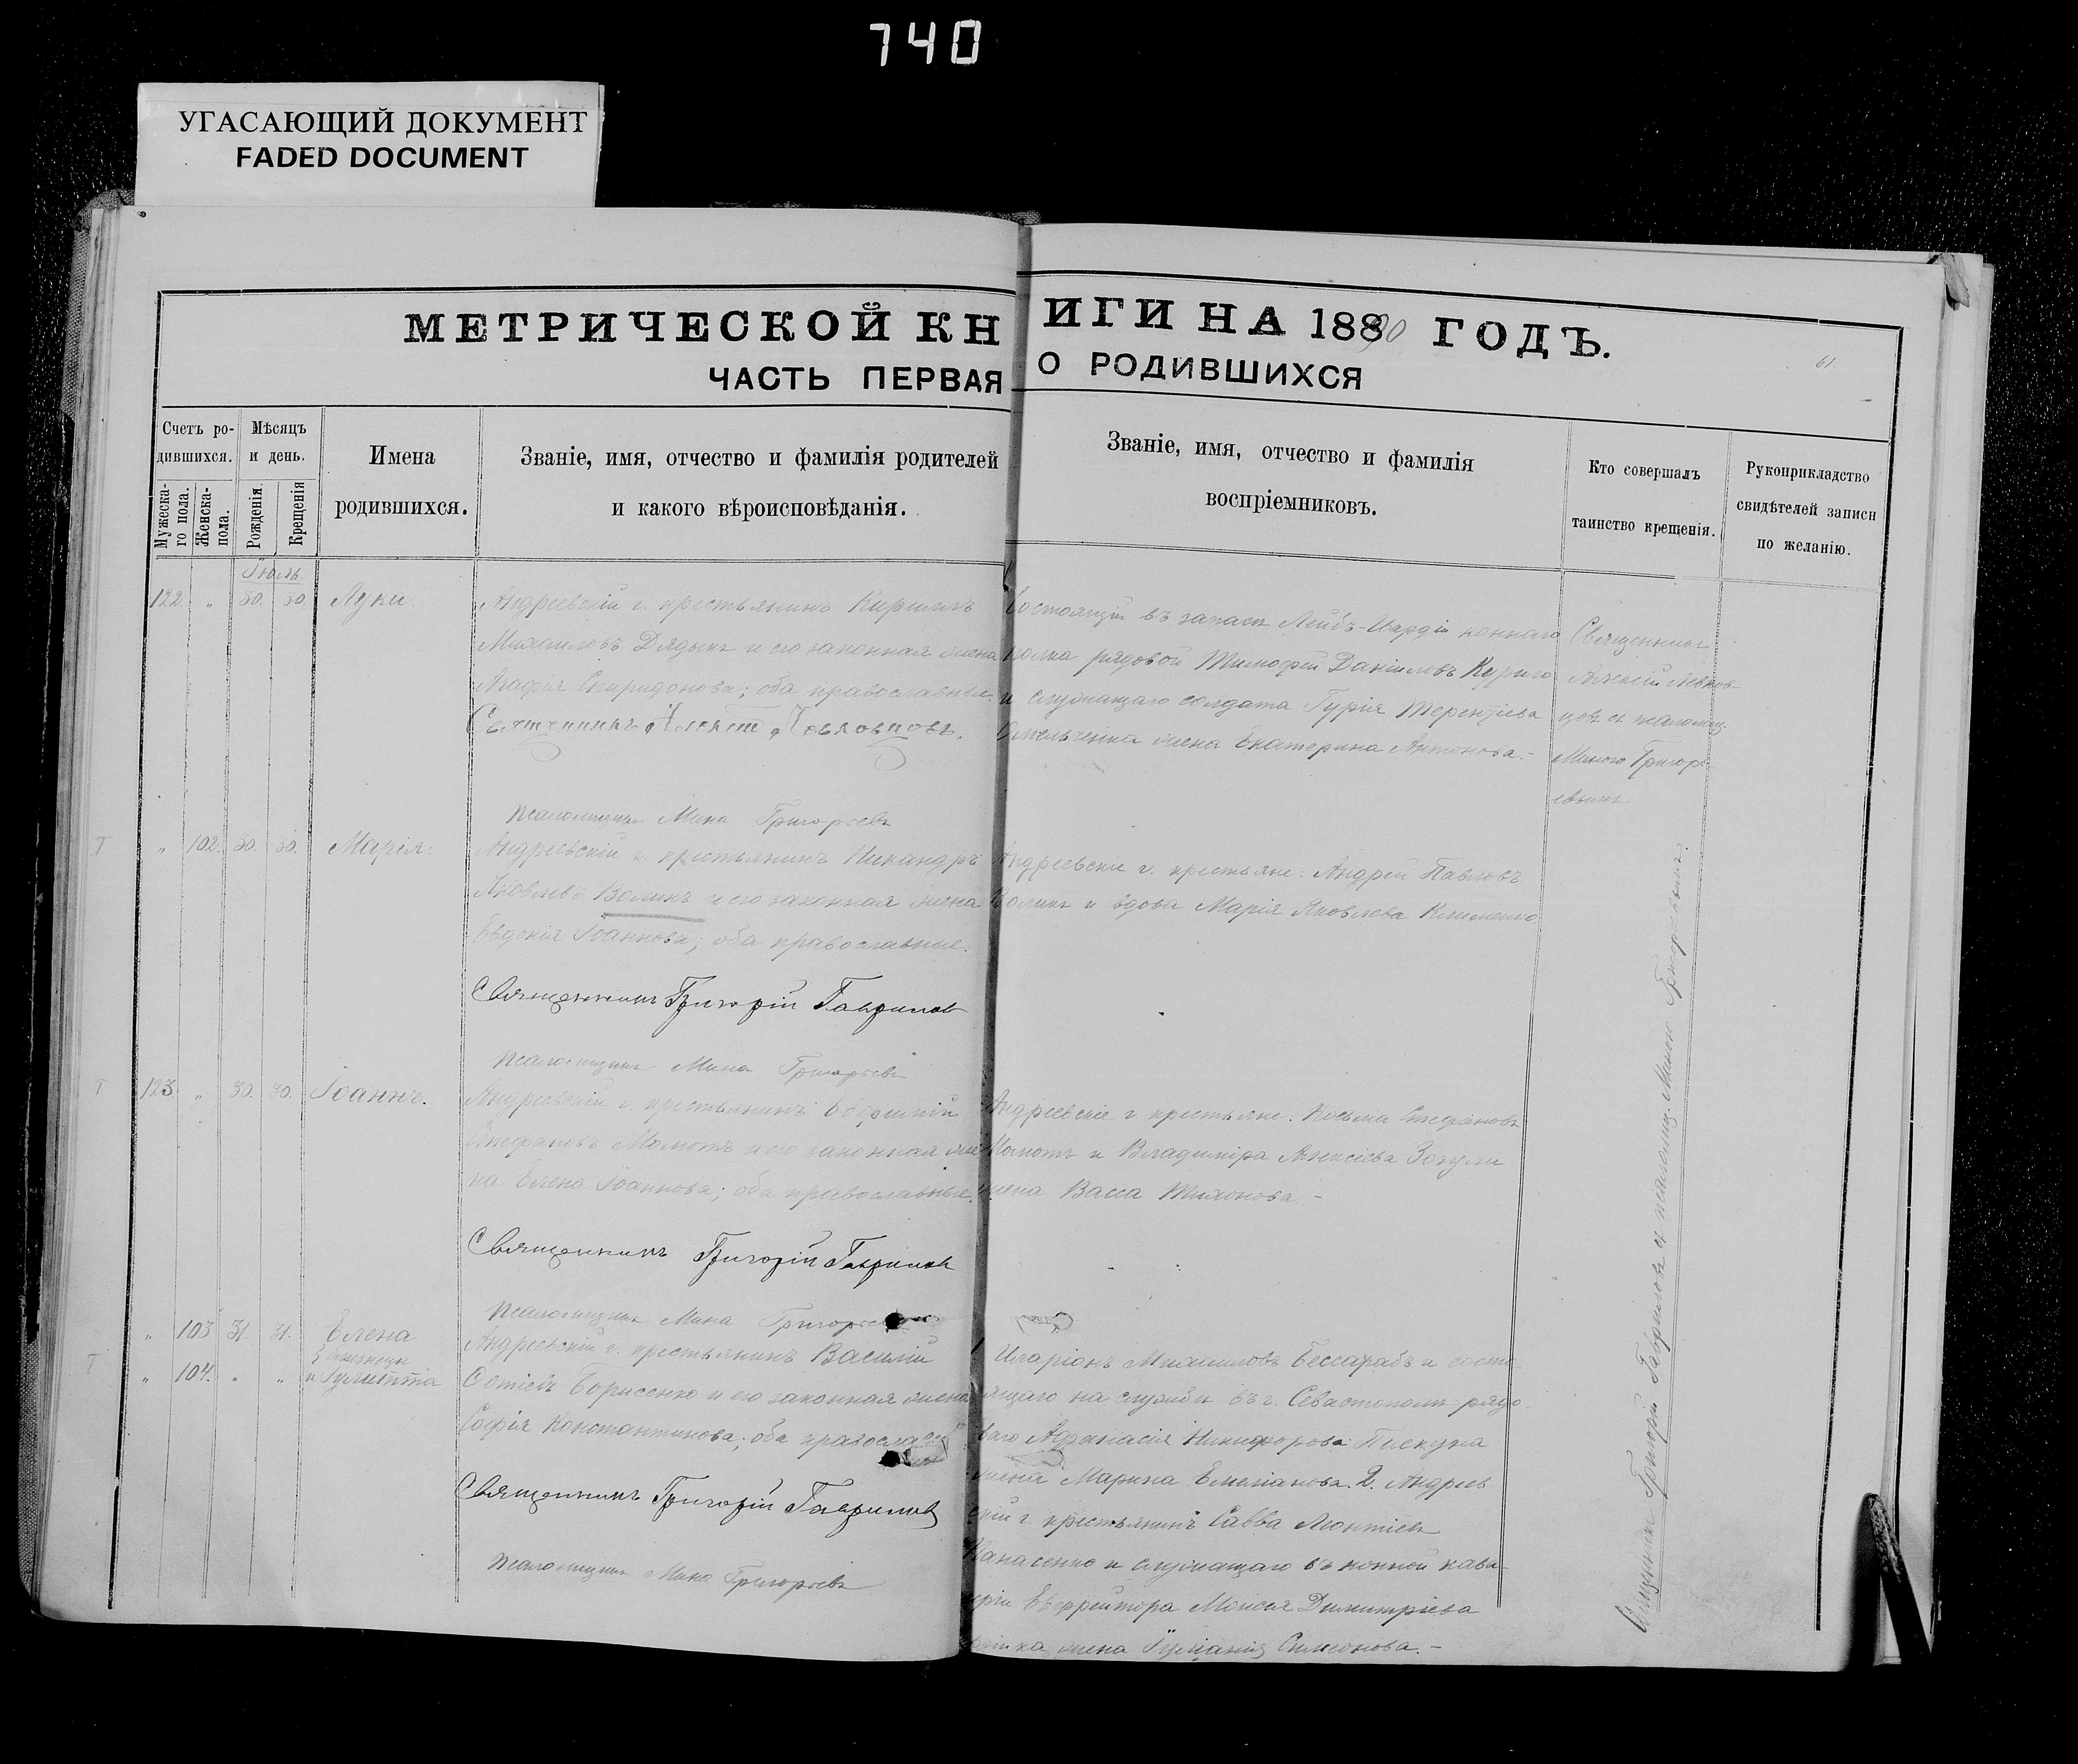 740
УГАСАЮЩИЙ ДОКУМЕНТ
FADED DOCUMENT
МЕТРИЧЕСКОЙ КНИГИ НА 1890 ГОДЪ.
61
ЧАСТЬ ПЕРВАЯ О РОДИВШИХСЯ
Счетъ родившихся.
Мужеска-го пола.
Женска- пола.
Мѣсяцъ и день.
Рожденія.
Крещенія
Имена
родившихся.
Званіе, имя, отчество и фамилія родителей
и какого вѣроисповѣданія.
Званіе, имя, отчество и фамилія
воспріемниковъ.
Кто совершалъ
таинство крещенія.
Рукоприкладство
свидѣтелей записи
по желанію.
Іюль.
122. " 30. 30.
Андреевскій г. крестьянинъ Кириллъ
Михаиловъ Дядыкъ и его законная жена
Агафія Спиридонова; оба православные.
Священникъ Алексій Левковцовъ.
Псаломщикъ Мина Григорьевъ
Состоящій въ запасѣ Лейбъ-Гвардіи коннаго
полка рядовой Тимофей Даніиловъ Курило
и служащаго солдата Гурія Терентіева
Омельченка жена Екатерина Антонова.-
Священникъ
Алексій Левков-
цовъ съ псаломщ.
Миною Григорь-
евымъ
Т " 102. 30. 30. Марія.
Андреевскій г. крестьянинъ Никандръ
Яковлевъ Воликъ и его законная жена
Евдокія Іоаннова; оба православные.
Священникъ Григорій Гавриловъ
Псаломщикъ Мина Григорьевъ
Андреевскіе г. крестьяне: Андрей Павловъ
Воликъ и вдова Марія Яковлева Клименко
Т 123 " 30. 30. Іоаннъ.
Андреевскій г. крестьянинъ Евфимій
Стефановъ Мамотъ и его законная же
на Елена Іоаннова; оба православные.
Священникъ Григорій Гавриловъ
Псаломщикъ Мина Григорьевъ
Андреевскіе г. крестьяне: Косьма Стефановъ
Мамотъ и Владиміра Алексіева Зозули
жена Васса Тихонова -
" 103 31. 31. Елена
близнецы
Т " 104. " " и Іулитта
Андреевскій г. крестьянинъ Василій
Фотіевъ Борисенко и его законная жена
Софія Константинова; оба православн
Священникъ Григорій Гавриловъ
Псаломщикъ Мина Григорьевъ
1 Иларіонъ Михаиловъ Бессарабъ и состо-
ящаго на службѣ въ г. Севастополѣ рядо-
ваго Афанасія Никифорова Пискуна
жена Марина Емеліанова. 2. Андреев
скій г. крестьянинъ Савва Леонтіевъ
Панасенко и служащаго въ конной кава-
леріи Ефрейтора Моисея Димитріева
жена Іуліанія Симеонова. -
Священникъ Григорій Гавриловъ съ псаломщ. Миною Григорьевымъ.